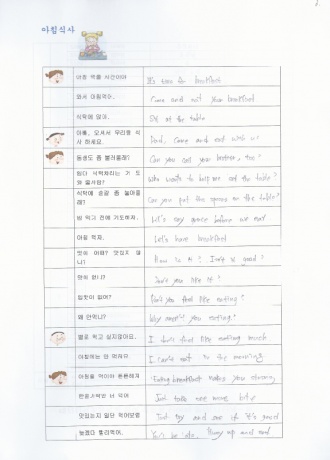 아침식사
아침 먹을 시간이야
It's time for breakfast
와서 아침먹어.
Come and eat your breakfast
식탁에 앉아.
Sit at the table
아빠, 오셔서 우리랑 식
사 하세요.
Dad, come and eat with us
동생도 좀 불러올래?
Can you call your brother, too?
엄마 식탁차리는 거 도
와 줄사람?
Who wants to help me set the table?
식탁에 숟갈 좀 놓아줄
래?
Can you put the spoons on the table?
밥 먹고 전에 기도하자.
Let's say grace before we eat
아침 먹자.
Let's have breakfast
맛이 어때? 맛있지 않
니?
How is it? Isn't it good?
맛이 없니?
Don't you like it?
입맛이 없어?
Don't you feel like eating?
왜 안먹니?
Why aren't you eating?
별로 먹고 싶지않아요.
I don't feel like eating much
아침에는 안 먹혀요
I can't eat in the morning
아침을 먹어야 튼튼해져
Eating breakfast makes you strong
한숟가락만 더 먹어
Just take one more bite
맛있는지 일단 먹어보렴
Just try and see if it's good
늦겠다 빨리먹어.
You'll be late. Hurry up and eat